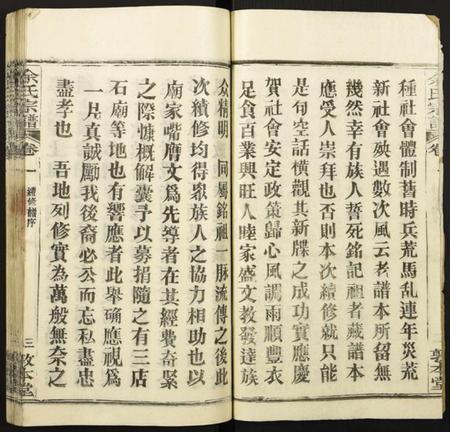 種社會體制昔時兵荒馬乱連年災荒
新社會殃遇數次風云老譜本所留無
幾然幸有族人誓死銘記祖者藏譜本
應受人崇拜也否則本次續修就只能
是句空話橫觀其新牒之成功實應慶
賀社會安定政策歸心風調雨順豐衣
足食百業興旺人睦家盛文教發達族
众精明 同馬銘祖一脉流傳之後此
次續修均得眾族人之協力相助也以
廟家嘴磨文爲先導者在其經費奇緊
之際慷概解囊予以募捐隨之有三店
石廟等地也有響應者此舉確應視爲
一片真誠勵我後裔必公而忘私盡忠
盡孝也 吾地列修實為萬般無奈之
余氏宗譜
卷一
續修譜序
三
敦本堂